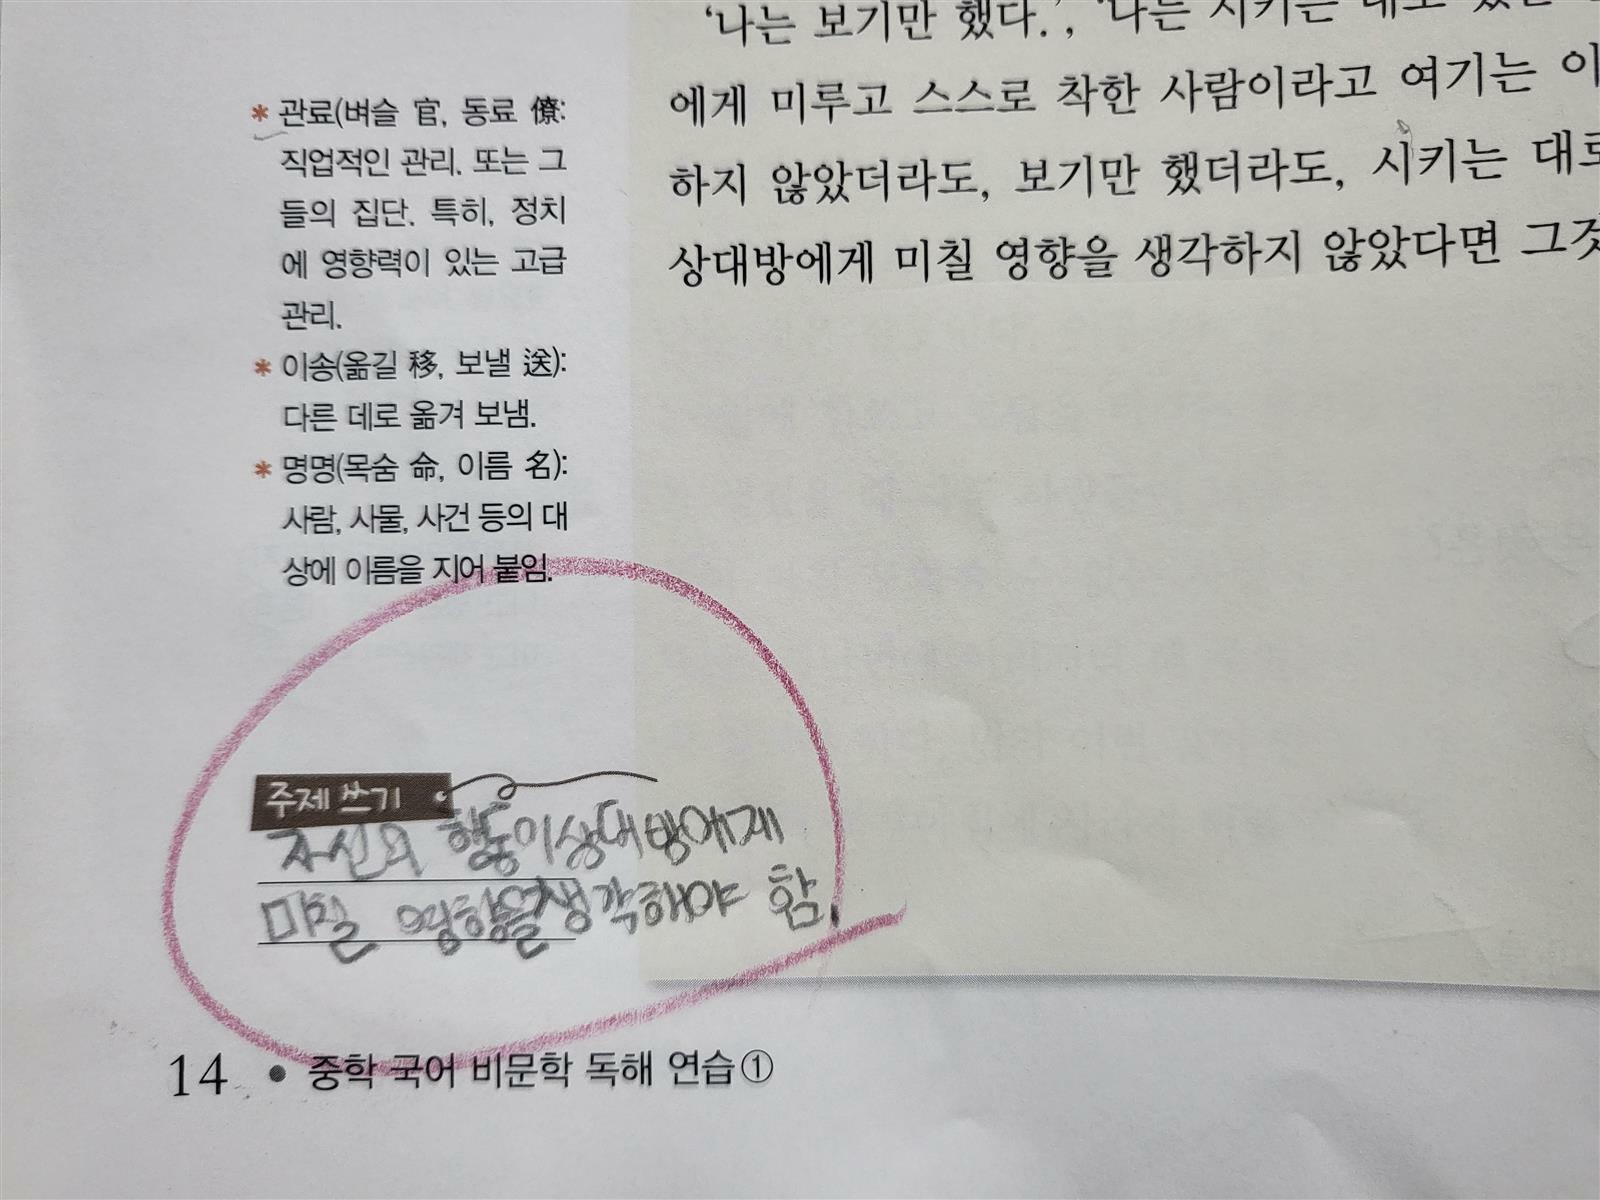 * 관료(벼슬 官, 동료 僚:
직업적인 관리. 또는 그
들의 집단. 특히, 정치
에 영향력이 있는 고급
관리.
* 이송(옮길 移, 보낼 送):
다른 데로 옮겨 보냄.
* 명명(목숨 命, 이름 名):
사람, 사물, 사건 등의 대
상에 이름을 지어 붙임.
‘나는 보기만 했다.’, ‘나는 시키는 대로
에게 미루고 스스로 착한 사람이라고 여기는 이
하지 않았더라도, 보기만 했더라도, 시키는 대로
상대방에게 미칠 영향을 생각하지 않았다면 그것
주제 쓰기
자신의 행동이 상대방에게
미칠 영향을 생각해야 함.
14 • 중학 국어 비문학 독해 연습①